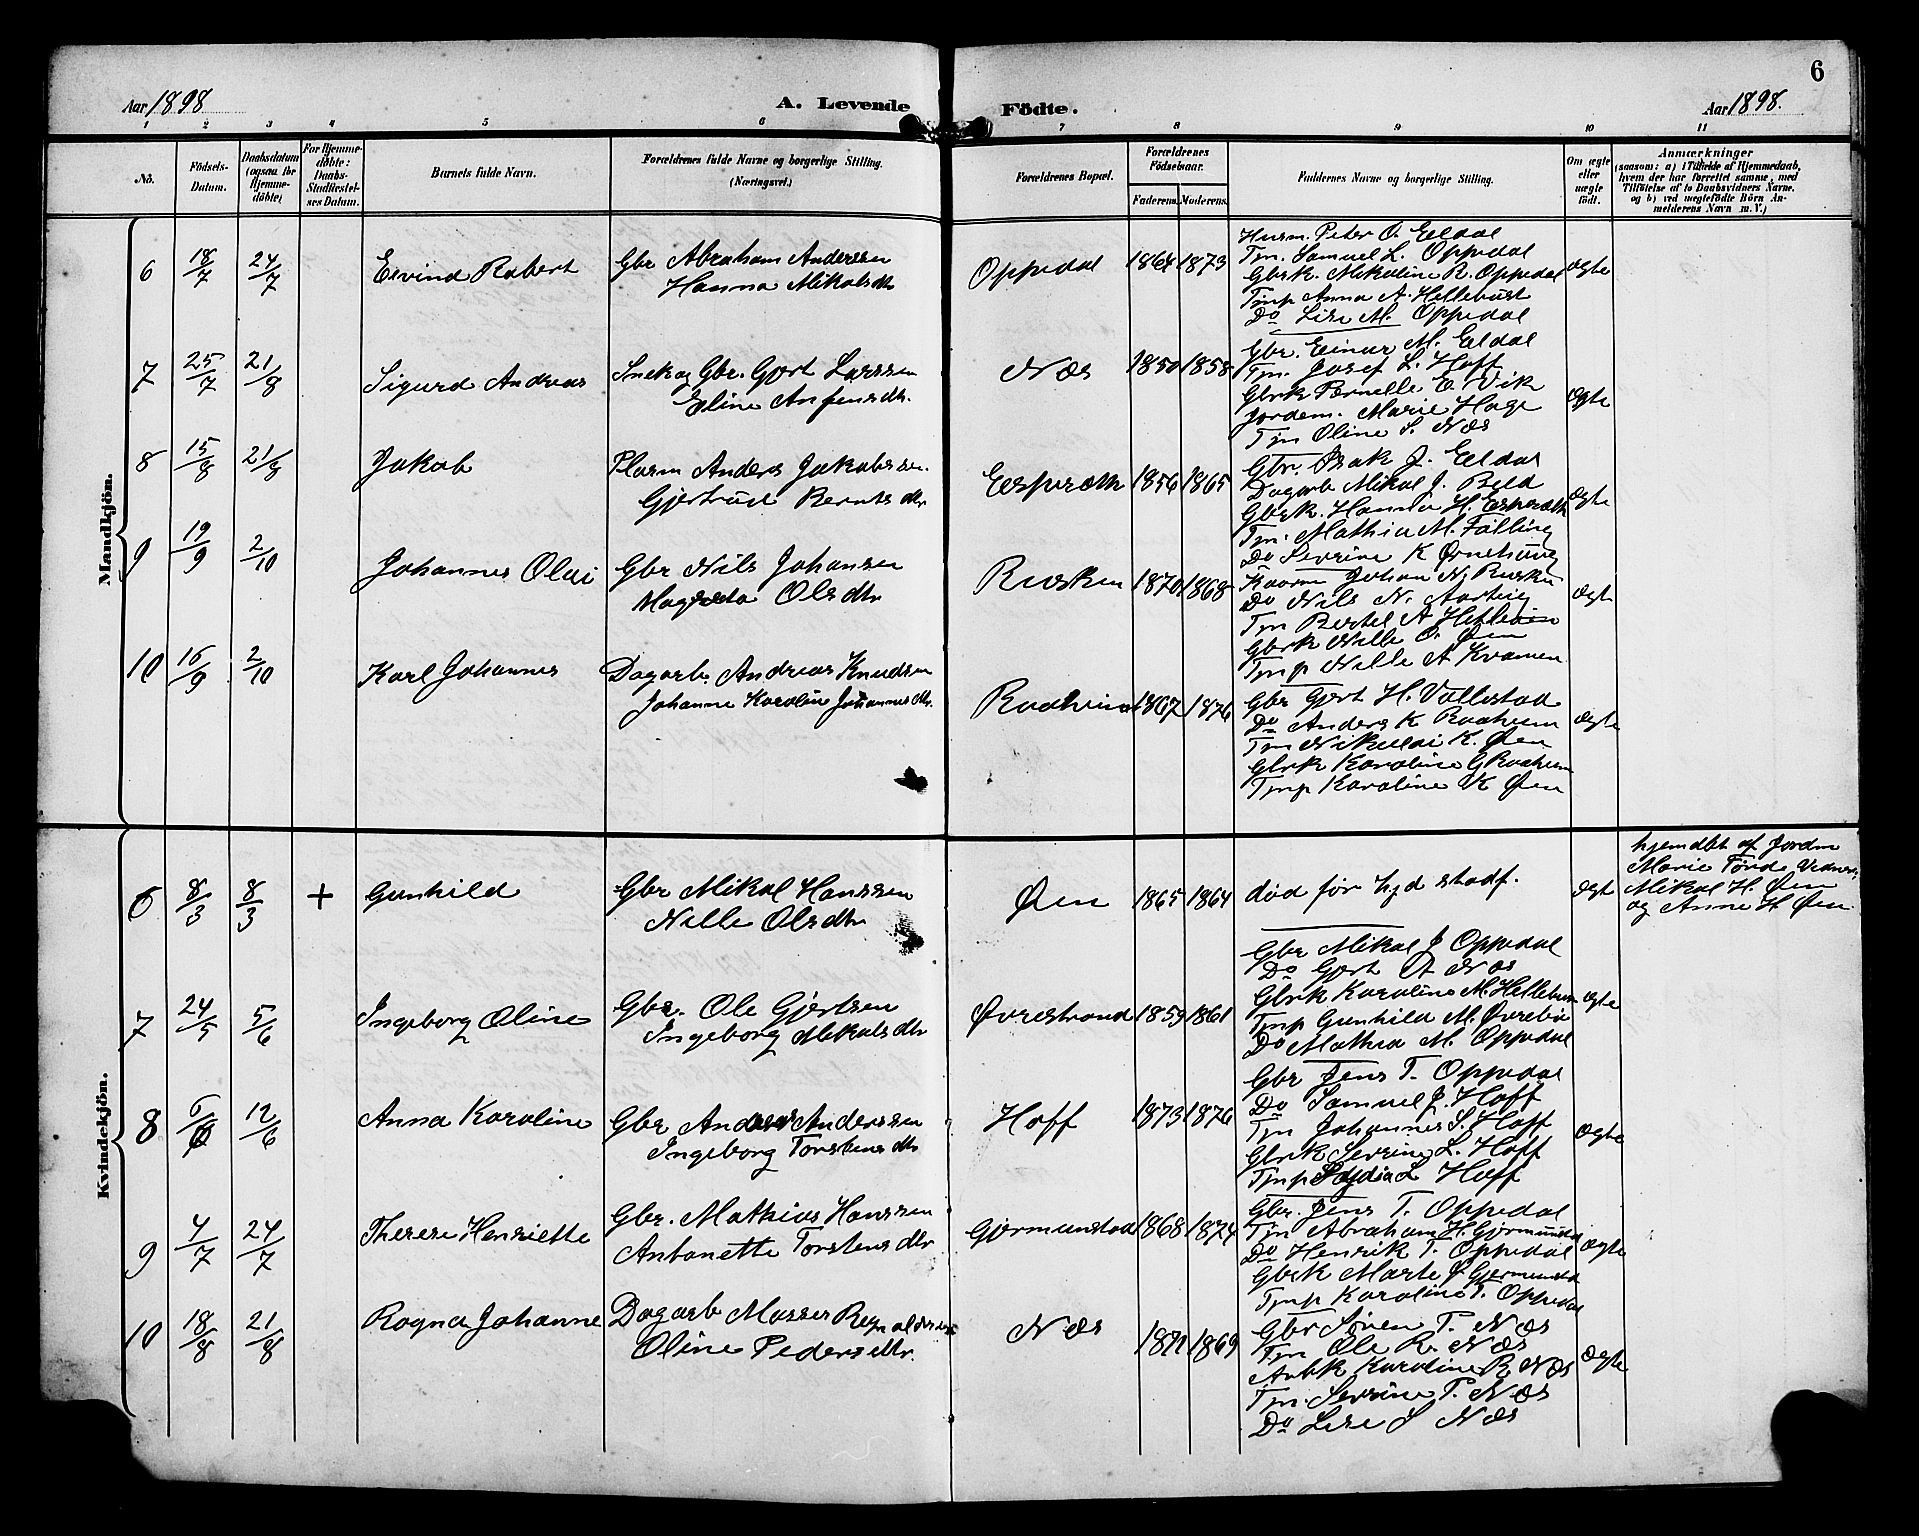 6
Aar 1898
A. Levende
Födte.
Aar 1898.
1 2 3 4 5 6 7 8 9 10 11
No.
Födsels-Datum.
Daabsdatum (ogsaa for Hjemme-döbte)
For Hjemme-döbte: Daabs-Stadfæstel-ses Datum.
Barnets fulde Navn.
Forældrenes fulde Navne og borgerlige Stilling. (Næringsvei.)
Forældrenes Bopæl.
Forældrenes Födselsaar.
Faderens. Moderens.
Faddernes Navne og borgerlige Stilling.
Om ægte eller uægte födt.
Anmærkninger
(saasom: a) i Tilfælde af Hjemmedaab,
hvem der har forrettet samme, med
Tilföielse af to Daabsvidners Navne.
og b) ved uægtefödte Börn An-
melderens Navn m. V.)
Mandkjön.
6 18/7 24/7 Eivind Robert
Gbr Abraham Anderssen
Hanna Mikalsdtr
Oppedal 1864 1873
Husm. Peter O. Eldal
Tjn. Samuel L. Oppedal
Gbrk. Mikaline R. Oppedal
Tjnp Anna A. Hellebust
Do Lise M. Oppedal
ægte
7 25/7 21/8 Sigurd Andreas
Snek og Gbr. Gjert Larssen
Eline Anfinsdtr.
Næs 1850 1858
Gbr. Einar M. Eldal
Tjn. Josef L. Hoff
Gbrk Pernelle E. Vik
Jordem. Marie Hage
Tjn Oline S. Næs
ægte
8 15/8 21/8 Jakob
Plasm Anders Jakobssen.
Gjertrud Berntsdtr
Espesæth 1856 1865
Gbr. Isak J. Eldal
Dagarb Mikal J. Beld
Gbrk. Hanna H. Espesæth
Tjn. Mathia M. Fälling
Do Sevrine K Ørnehaug
ægte
9 19/9 2/10 Johannes Olai
Gbr Nils Johansen
Magreta Olsdtr
Risken 1870 1868
Kaarm Johan N. Riske
Do Nils N. Aarteig
Tjn Bertel A Hetleøen
Gbrk Nille O. Øen
Tjnp Nille A Kvamen
ægte
10 16/9 2/10 Karl Johannes
Dagarb. Andreas Knudsen
Johanne Karoline Johannesdtr.
Raaheim 1867 1876
Gbr Gjert H. Vallestad
Do Anders K Raaheim
Tjn Nikulai K. Øen
Gbrk Karoline G Raaheim
Tjnp Karoline K Øen
ægte
Kvindekjön.
6 8/3 8/3 + Gunhild
Gbr Mikal Hanssen
Nille Olsdtr
Øen 1865 1864
død før hjd stadf.
ægt
hjemdbt af Jordm
Marie Førde Vidner:
Mikal H. Øen
og Anne H. Øen
7 24/5 5/6 Ingeborg Oline
Gbr. Ole Gjertsen
Ingeborg Mikalsdtr
Øvrestrand 1859 1861
Gbr Mikal J Oppedal
Do Gjert A Næs
Gbrk Karoline M. Hellebust
Tjnp Gunhild M. Øvrebø
Do Mathia M. Oppedal
ægte
8 6/6 12/6 Anna Karoline
Gbr Anders Anderssen
Ingeborg Torstensdtr
Hoff 1873 1876
Gbr Jens T. Oppedal
Do Samuel J. Hoff
Tjn Johannes S. Hoff
Gbrk Sevrine L. Hoff
Tjnp L Hoff
ægte
9 4/7 24/7 Therese Henriette
Gbr. Mathias Hanssen
Antonette Torstensdtr
Gjermunstad 1868 1874
Gbr. Jens T. Oppedal
Tjn Abraham H. Gjermunsta
Do Henrik T. Oppedal
Gbrk Marte J Gjermunsta
Tjnp Karoline T. Oppedal
ægte
10 18/8 21/8 Ragna Johanne
Dagarb Masser Regnaldsen
Oline Pedersdtr.
Næs 1871 1869
Gbr Søren T. Næs
Tjn Ole R. Næs
Arbk Karoline R Næs
Tjn. Sevrine T. Næs
Do Lise S Næs
ægte